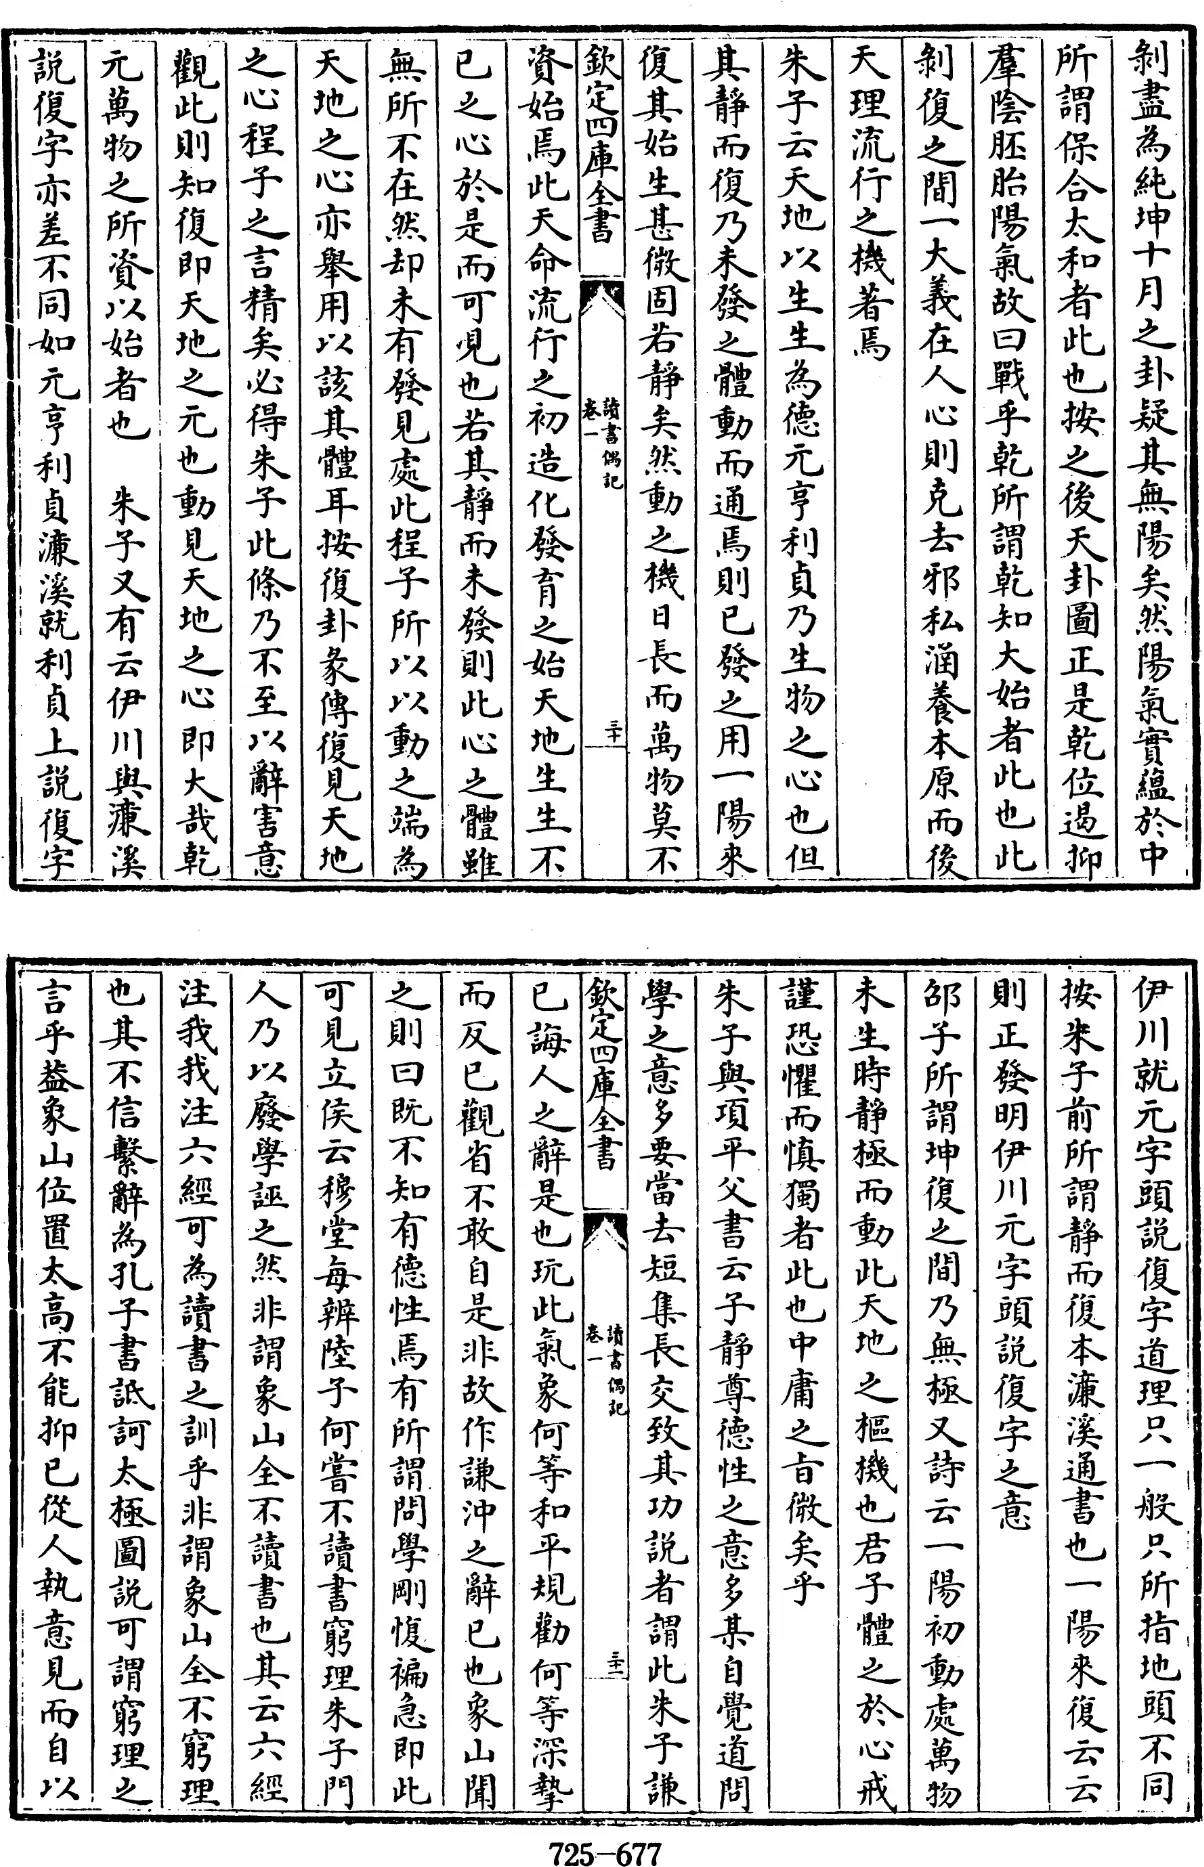 剝盡為純坤十月之卦疑其無陽矣然陽氣實蘊於中
所謂保合太和者此也按之後天卦圖正是乾位遏抑
羣陰胚胎陽氣故曰戰乎乾所謂乾知大始者此也此
剝復之間一大義在人心則克去邪私涵養本原而後
天理流行之機著焉
朱子云天地以生生為德元亨利貞乃生物之心也但
其靜而復乃未發之體動而通焉則已發之用一陽來
復其始生甚微固若靜矣然動之機日長而萬物莫不
欽定四庫全書
讀書偶記
卷一
三十
資始焉此天命流行之初造化發育之始天地生生不
已之心於是而可見也若其靜而未發則此心之體雖
無所不在然却未有發見處此程子所以以動之端為
天地之心亦舉用以該其體耳按復卦彖傳復見天地
之心程子之言精矣必得朱子此條乃不至以辭害意
觀此則知復即天地之元也動見天地之心即大哉乾
元萬物之所資以始者也 朱子又有云伊川與濂溪
説復字亦差不同如元亨利貞濂溪就利貞上説復字
伊川就元字頭説復字道理只一般只所指地頭不同
按朱子前所謂靜而復本濂溪通書也一陽來復云云
則正發明伊川元字頭説復字之意
邵子所謂坤復之間乃無極又詩云一陽初動處萬物
未生時靜極而動此天地之樞機也君子體之於心戒
謹恐懼而慎獨者此也中庸之旨微矣乎
朱子與項平父書云子靜尊德性之意多某自覺道問
學之意多要當去短集長交致其功説者謂此朱子謙
欽定四庫全書
讀書偶記
卷一
三十一
已誨人之辭是也玩此氣象何等和平規勸何等深摯
而反已觀省不敢自是非故作謙沖之辭已也象山聞
之則曰既不知有德性焉有所謂問學剛愎褊急即此
可見立侯云穆堂每辨陸子何嘗不讀書窮理朱子門
人乃以廢學誣之然非謂象山全不讀書也其云六經
注我我注六經可為讀書之訓乎非謂象山全不窮理
也其不信繫辭為孔子書詆訶太極圖説可謂窮理之
言乎葢象山位置太高不能抑已從人執意見而自以
725-677